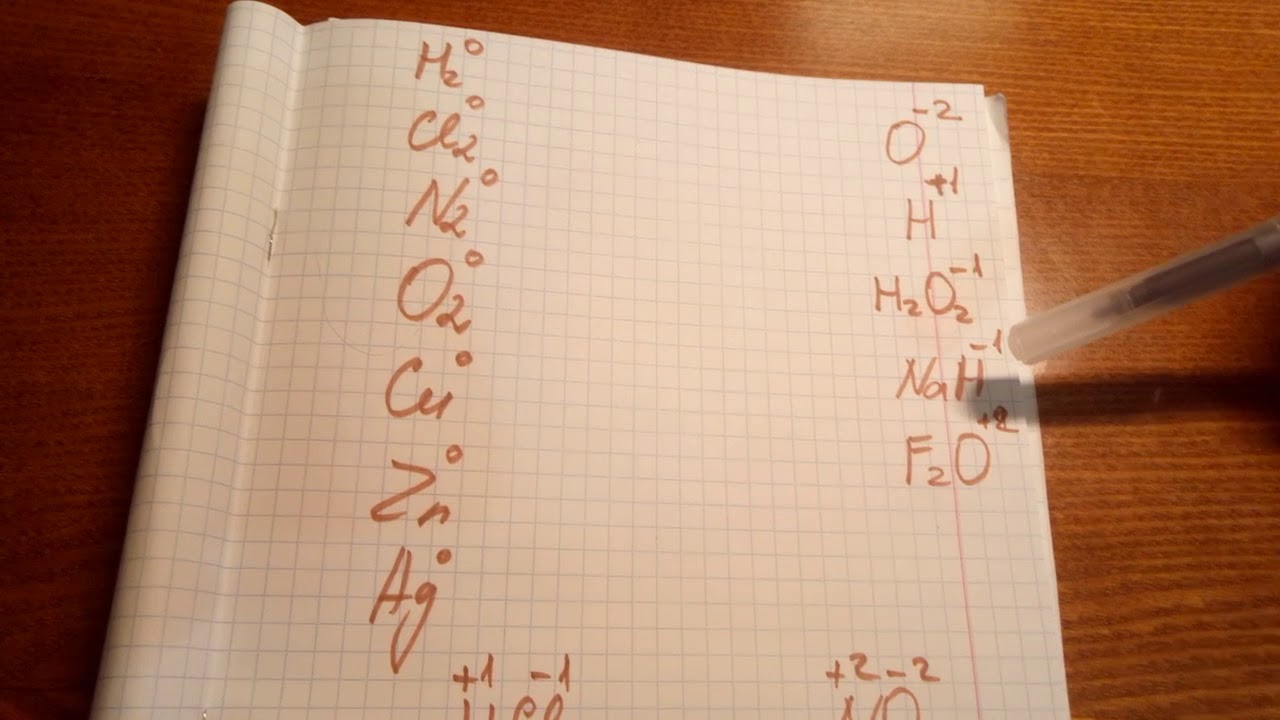 H₂⁰
Cl₂⁰
N₂⁰
O₂⁰
Cu⁰
Zn⁰
Ag⁰
O⁻²
H⁺¹
H₂O₂⁻¹
NaH⁻¹
F₂O⁺²
+1 -1
HCl
+2 -2
NO